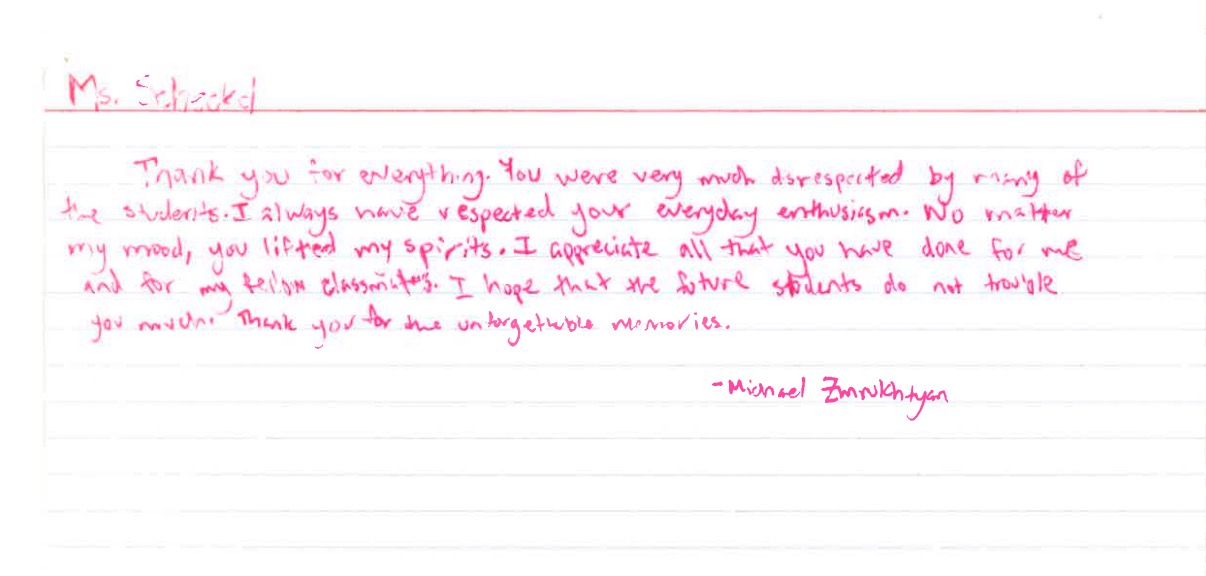 Ms.
Thank you for everything. You were very much disrespected by many of
the students. I always have respected your everyday enthusiasm. No matter
my mood, you lifted my spirits. I appreciate all that you have done for me
and for my fellow classmates. I hope that the future students do not trouble
you much. Thank you for the unforgettable memories.
-Michael Zmrukhtyan